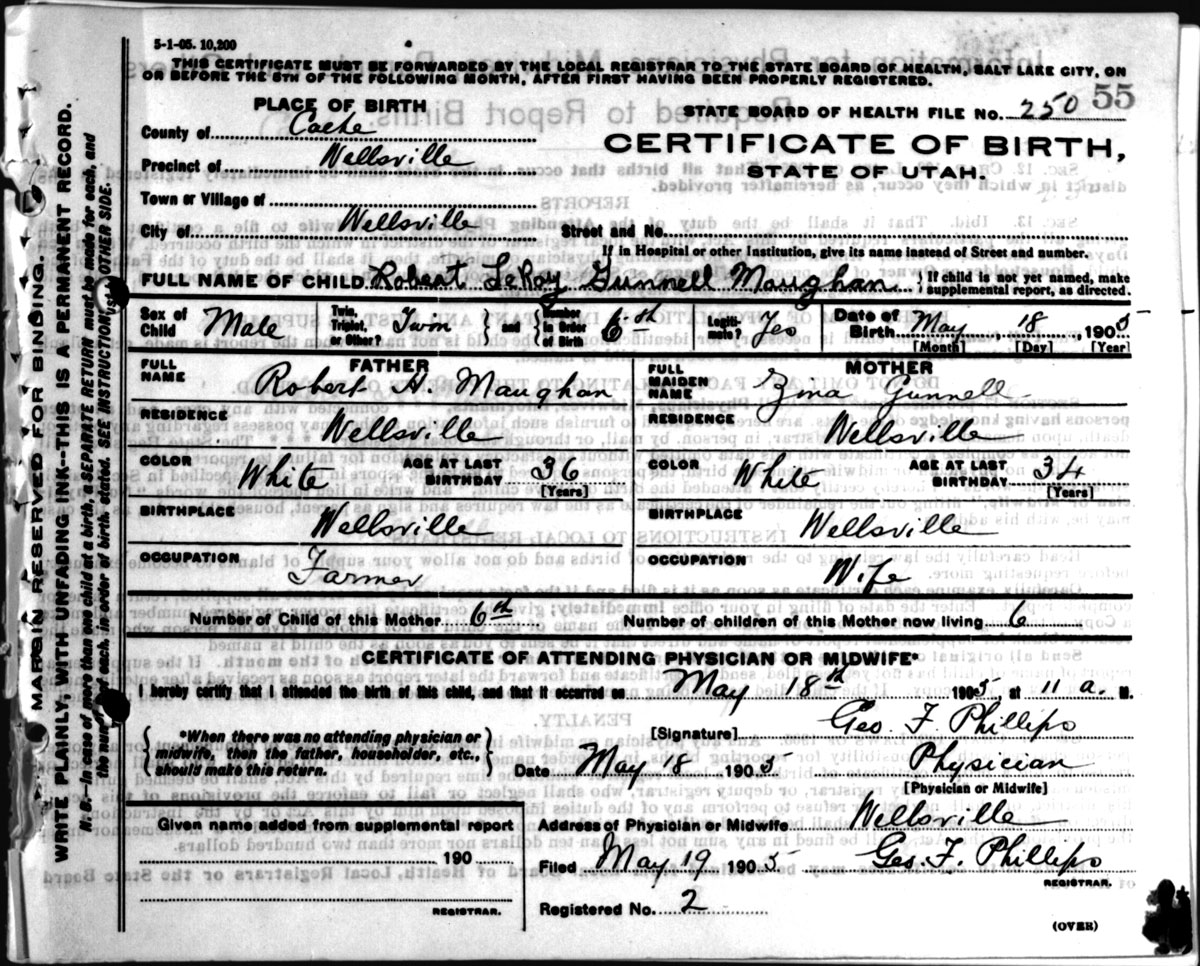 5-1-05. 10,200
THIS CERTIFICATE MUST BE FORWARDED BY THE LOCAL REGISTRAR TO THE STATE BOARD OF HEALTH, SALT LAKE CITY, ON
OR BEFORE THE 5TH OF THE FOLLOWING MONTH, AFTER FIRST HAVING BEEN PROPERLY REGISTERED.
PLACE OF BIRTH
STATE BOARD OF HEALTH FILE No. 250 55
County of Cache
CERTIFICATE OF BIRTH,
Precinct of Wellsville
STATE OF UTAH.
Town or Village of
City of Wellsville Street and No.
If in Hospital or other Institution, give its name instead of Street and number.
FULL NAME OF CHILD Robert LeRoy Gunnell Maughan } If child is not yet named, make supplemental report, as directed.
Sex of Child Male Twin, Triplet, or Other? Twin } and { Number in Order of Birth 6th Legiti-mate? Yes Date of Birth May, 18, 1905
[Month] [Day] [Year]
FATHER MOTHER
FULL NAME Robert H. Maughan FULL MAIDEN NAME Zina Gunnell
RESIDENCE Wellsville RESIDENCE Wellsville
COLOR White AGE AT LAST BIRTHDAY 36 [Years] COLOR White AGE AT LAST BIRTHDAY 34 [Years]
BIRTHPLACE Wellsville BIRTHPLACE Wellsville
OCCUPATION Farmer OCCUPATION Wife
Number of Child of this Mother 6th Number of children of this Mother now living 6
CERTIFICATE OF ATTENDING PHYSICIAN OR MIDWIFE*
I hereby certify that I attended the birth of this child, and that it occurred on May 18th 1905 at 11 a. M.
{ *When there was no attending physician or midwife, then the father, householder, etc., should make this return. }
[Signature] Geo. F. Phillips
Date May 18 1905 Physician
[Physician or Midwife]
Given name added from supplemental report
190
REGISTRAR.
Address of Physician or Midwife Wellsville
Filed May 19 1905 Geo. F. Phillips
REGISTRAR.
Registered No. 2
(OVER)
MARGIN RESERVED FOR BINDING.
WRITE PLAINLY, WITH UNFADING INK--THIS IS A PERMANENT RECORD.
N. B.--In case of more than one child at a birth, a SEPARATE RETURN must be made for each, and
the number of each, in order of birth, stated. SEE INSTRUCTIONS ON OTHER SIDE.